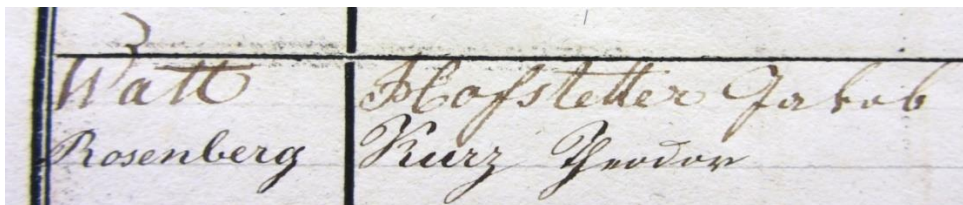 Watt Hofstetter Jakob
Rosenberg Kurz Theodor